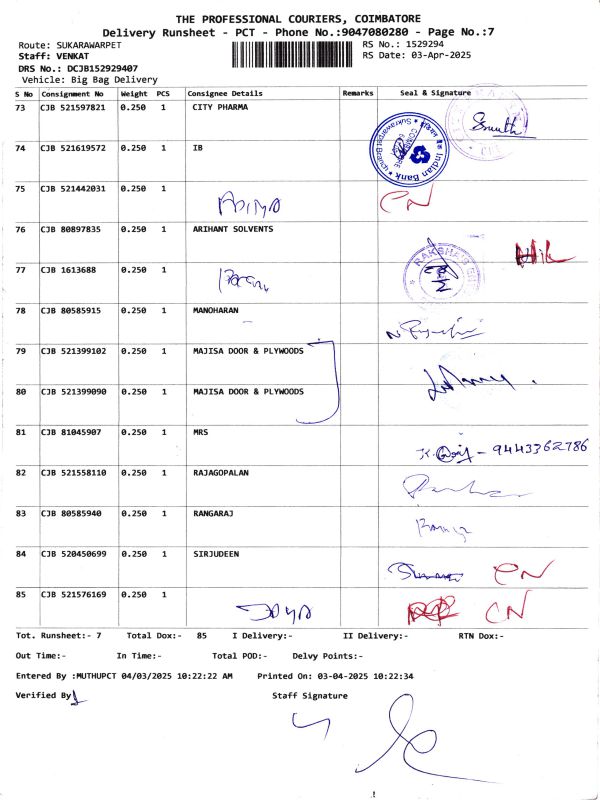 THE PROFESSIONAL COURIERS, COIMBATORE
Delivery Runsheet - PCT - Phone No.:9047080280 - Page No.:7
Route: SUKARAWARPET
RS No.: 1529294
Staff: VENKAT
RS Date: 03-Apr-2025
DRS No.: DCJB152929407
Vehicle: Big Bag Delivery
S No Consignment No Weight PCS Consignee Details Remarks Seal & Signature
73 CJB 521597821 0.250 1 CITY PHARMA
74 CJB 521619572 0.250 1 IB
Indian Bank
75 CJB 521442031 0.250 1
CN
76 CJB 80897835 0.250 1 ARIHANT SOLVENTS
77 CJB 1613688 0.250 1
78 CJB 80585915 0.250 1 MANOHARAN
79 CJB 521399102 0.250 1 MAJISA DOOR & PLYWOODS
80 CJB 521399090 0.250 1 MAJISA DOOR & PLYWOODS
81 CJB 81045907 0.250 1 MRS
- 9443362786
82 CJB 521558110 0.250 1 RAJAGOPALAN
83 CJB 80585940 0.250 1 RANGARAJ
84 CJB 520450699 0.250 1 SIRJUDEEN
CN
85 CJB 521576169 0.250 1
CN
Tot. Runsheet:- 7 Total Dox:- 85 I Delivery:- II Delivery:- RTN Dox:-
Out Time:- In Time:- Total POD:- Delvy Points:-
Entered By :MUTHUPCT 04/03/2025 10:22:22 AM Printed On: 03-04-2025 10:22:34
Verified By Staff Signature